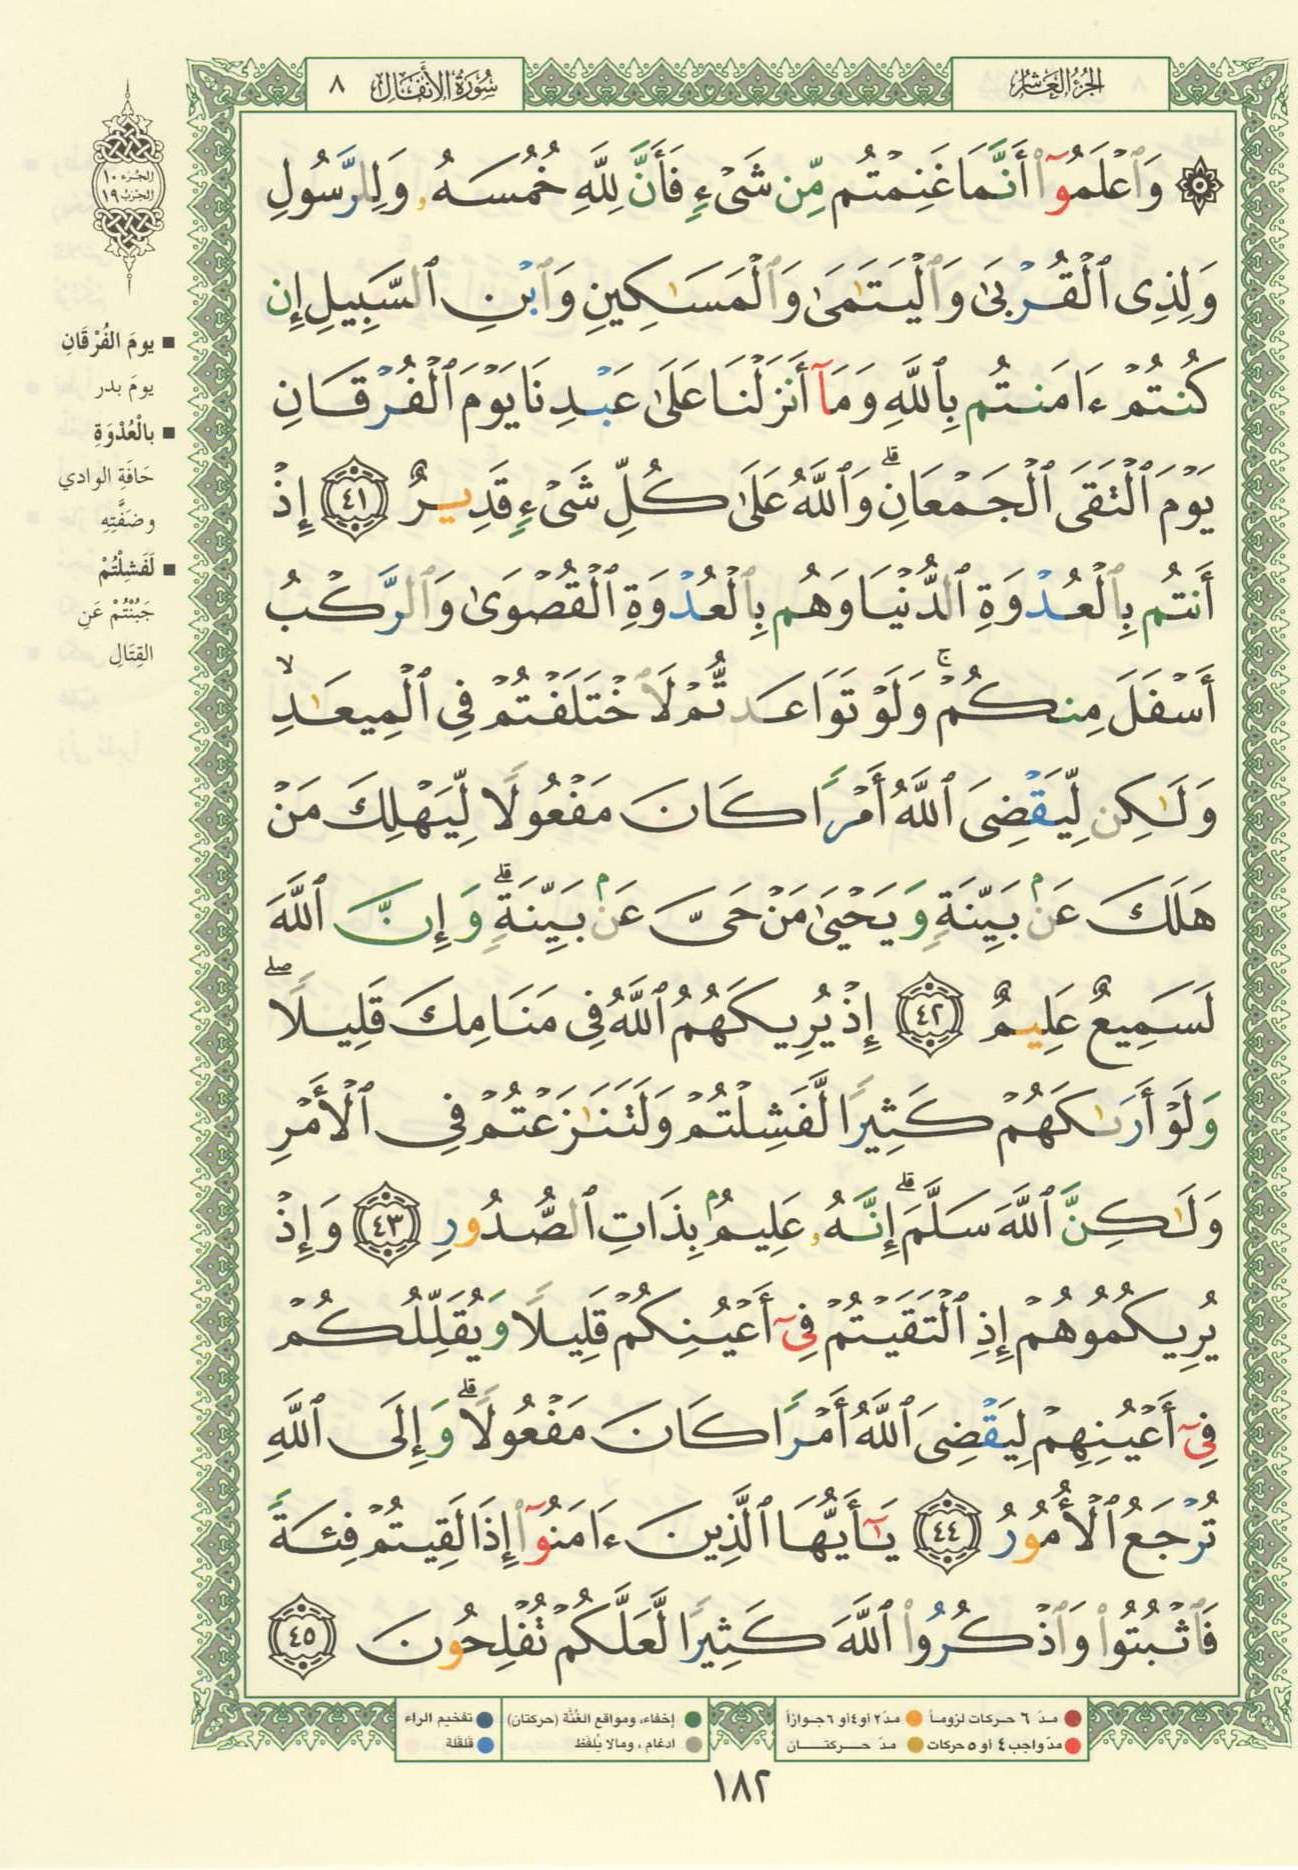 الجزء العاشر
سورة الأنفال ٨
۞ وَٱعۡلَمُوٓاْ أَنَّمَا غَنِمۡتُم مِّن شَىۡءٍ فَأَنَّ لِلَّهِ خُمُسَهُۥ وَلِلرَّسُولِ
وَلِذِى ٱلۡقُرۡبَىٰ وَٱلۡيَتَٰمَىٰ وَٱلۡمَسَٰكِينِ وَٱبۡنِ ٱلسَّبِيلِ إِن
كُنتُمۡ ءَامَنتُم بِٱللَّهِ وَمَآ أَنزَلۡنَا عَلَىٰ عَبۡدِنَا يَوۡمَ ٱلۡفُرۡقَانِ
يَوۡمَ ٱلۡتَقَى ٱلۡجَمۡعَانِۗ وَٱللَّهُ عَلَىٰ كُلِّ شَىۡءٍ قَدِيرٌ ٤١ إِذۡ
أَنتُم بِٱلۡعُدۡوَةِ ٱلدُّنۡيَا وَهُم بِٱلۡعُدۡوَةِ ٱلۡقُصۡوَىٰ وَٱلرَّكۡبُ
أَسۡفَلَ مِنكُمۡۚ وَلَوۡ تَوَاعَدتُّمۡ لَٱخۡتَلَفۡتُمۡ فِى ٱلۡمِيعَٰدِۙ
وَلَٰكِن لِّيَقۡضِىَ ٱللَّهُ أَمۡرٗا كَانَ مَفۡعُولٗا لِّيَهۡلِكَ مَنۡ
هَلَكَ عَنۢ بَيِّنَةٖ وَيَحۡيَىٰ مَنۡ حَىَّ عَنۢ بَيِّنَةٖۗ وَإِنَّ ٱللَّهَ
لَسَمِيعٌ عَلِيمٌ ٤٢ إِذۡ يُرِيكَهُمُ ٱللَّهُ فِى مَنَامِكَ قَلِيلٗاۖ
وَلَوۡ أَرَىٰكَهُمۡ كَثِيرٗا لَّفَشِلۡتُمۡ وَلَتَنَٰزَعۡتُمۡ فِى ٱلۡأَمۡرِ
وَلَٰكِنَّ ٱللَّهَ سَلَّمَۗ إِنَّهُۥ عَلِيمُۢ بِذَاتِ ٱلصُّدُورِ ٤٣ وَإِذۡ
يُرِيكُمُوهُمۡ إِذِ ٱلۡتَقَيۡتُمۡ فِىٓ أَعۡيُنِكُمۡ قَلِيلٗا وَيُقَلِّلُكُمۡ
فِىٓ أَعۡيُنِهِمۡ لِيَقۡضِىَ ٱللَّهُ أَمۡرٗا كَانَ مَفۡعُولٗاۗ وَإِلَى ٱللَّهِ
تُرۡجَعُ ٱلۡأُمُورُ ٤٤ يَٰٓأَيُّهَا ٱلَّذِينَ ءَامَنُوٓاْ إِذَا لَقِيتُمۡ فِئَةٗ
فَٱثۡبُتُواْ وَٱذۡكُرُواْ ٱللَّهَ كَثِيرٗا لَّعَلَّكُمۡ تُفۡلِحُونَ ٤٥
الجزء ١٠
الحزب ١٩
■ يومَ الفُرْقَانِ
يومَ بدر
■ بالْعُدْوَةِ
حَافَةِ الوادي
وضَفَّتِهِ
■ لَفَشِلْتُمْ
جَبُنْتُمْ عَنِ
القِتَالِ
● مدّ ٦ حركات لزوماً ● مدّ ٢ أو ٤ أو ٦ جوازاً
● مدّ واجب ٤ أو ٥ حركات ● مدّ حركتان
● إخفاء، ومواقع الغُنَّة (حركتان)
● ادغام، وما لا يُلفَظ
● تفخيم الراء
● قلقلة
١٨٢